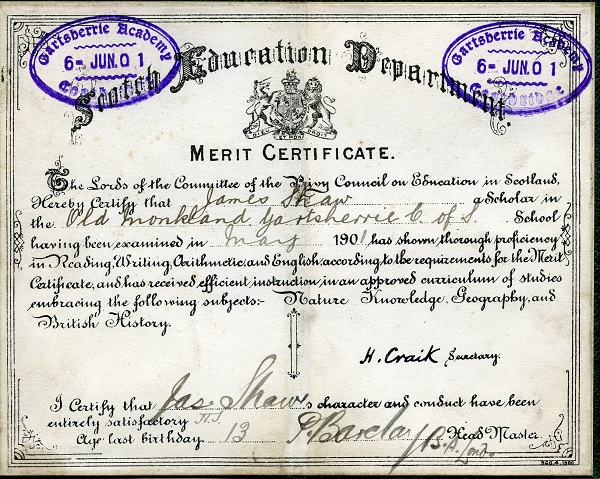 Gartsherrie Academy
6 - JUN. 0 1
Gartsherrie Academy
6 - JUN. 0 1
Scotch Education Department.
MERIT CERTIFICATE.
The Lords of the Committee of the Privy Council on Education in Scotland,
Hereby Certify that James Shaw a Scholar in
the Old Monkland Gartsherrie C. of S. School
having been examined in May 1901 has shown thorough proficiency
in Reading, Writing, Arithmetic, and English, according to the requirements for the Merit
Certificate, and has received efficient instruction in an approved curriculum of studies
embracing the following subjects:- Nature Knowledge, Geography, and
British History.
H. Craik Secretary.
I Certify that Jas. Shaw's character and conduct have been
entirely satisfactory
Age last birthday 13 Barclay B.A. Lond. Head Master.